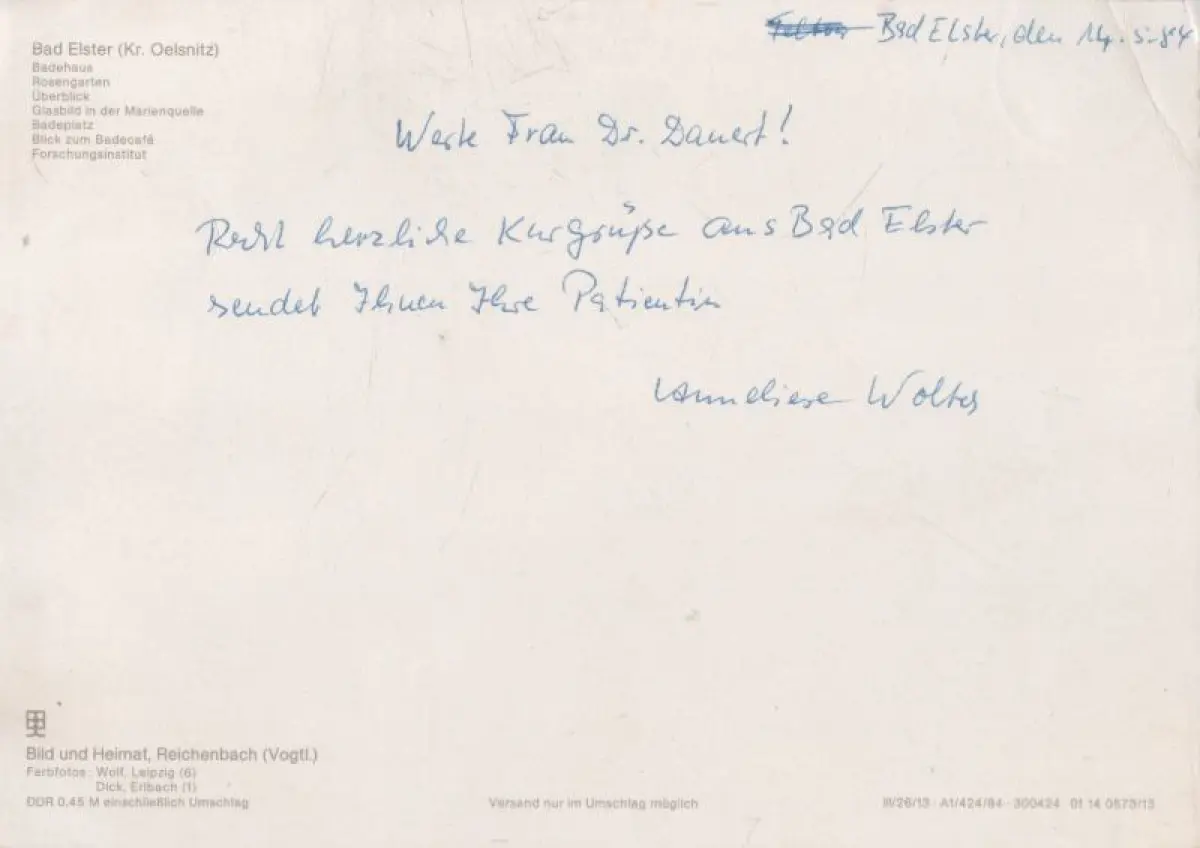 Bad Elster, den 14. 5. 84
Bad Elster (Kr. Oelsnitz)
Badehaus
Rosengarten
Überblick
Glasbild in der Marienquelle
Badeplatz
Blick zum Badecafé
Forschungsinstitut
Werte Frau Dr. Dauert!
Recht herzliche Kurgrüße aus Bad Elster
sendet Ihnen Ihre Patientin
Anneliese Wolter
Bild und Heimat, Reichenbach (Vogtl.)
Farbfotos: Wolf, Leipzig (6)
Dick, Erlbach (1)
DDR 0,45 M einschließlich Umschlag
Versand nur im Umschlag möglich
III/26/13 · A1/424/84 · 300424 01 14 0573/13